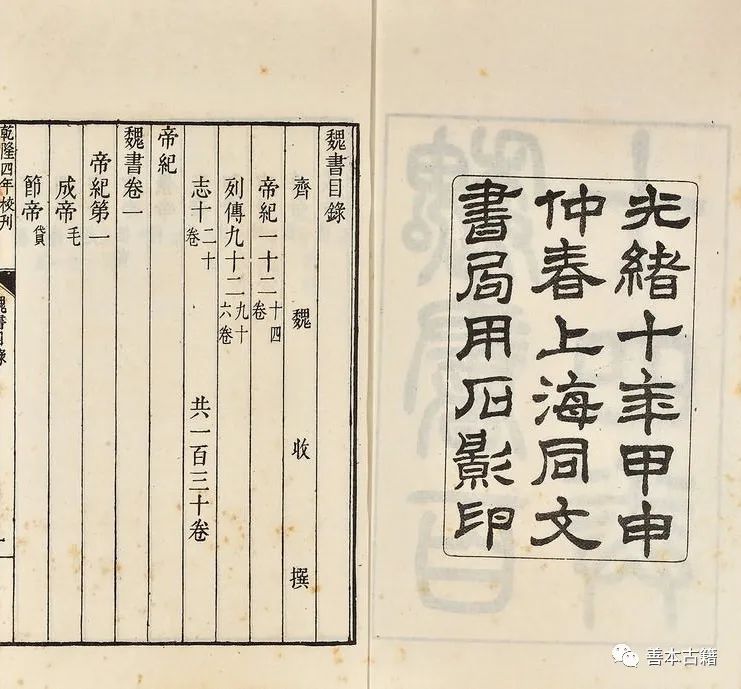 光緒十年甲申
仲春上海同文
書局用石影印
魏書目錄
齊 魏 收 撰
帝紀一十二 十四卷
列傳九十二 九十六卷
志十 二十卷 共一百三十卷
帝紀
魏書卷一
帝紀第一
成帝 毛
節帝 貸
乾隆四年校刊
魏書目錄
善本古籍